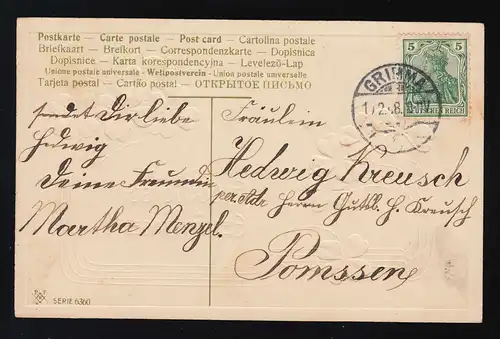 Postkarte - Carte postale - Post card - Cartolina postale
Briefkaart - Brefkort - Correspondenzkarte - Dopisnica
Dopisnice - Karta korespondencyjna - Levelező-Lap
Unione postale universale - Weltpostverein - Union postale universelle
Tarjeta postal - Cartão postal - ОТКРЫТОЕ ПИСЬМО
5 5
DEUTSCHES REICH
GRIMMA
sendet Dir liebe
Hedwig
Deine Freundin
Martha Menzel.
Fräulein
Hedwig Kreusch
per. Adr. Herrn Gutsb. H. Kreusch
Pomssen
SERIE 6360